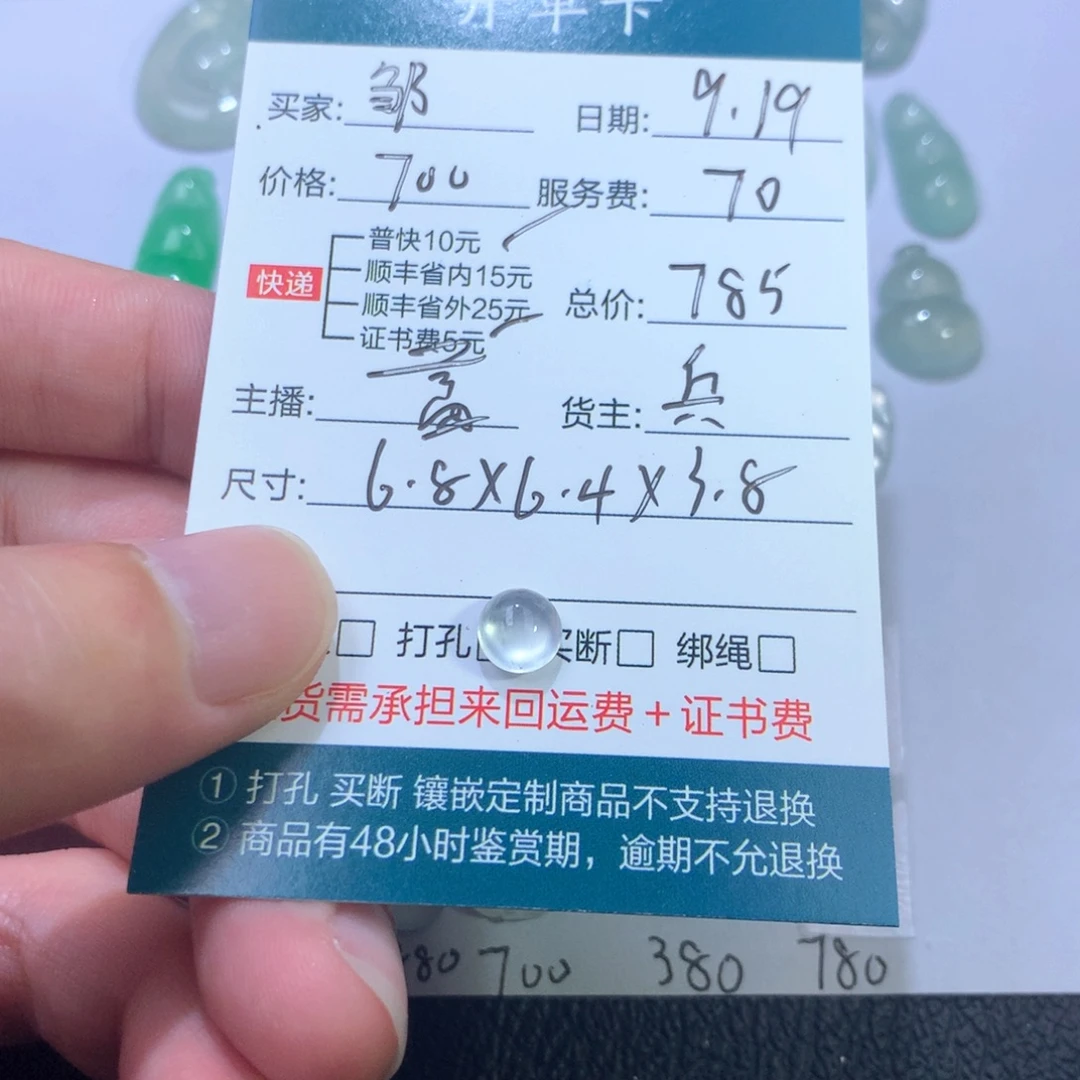 开单卡
买家: 邹 日期: 9.19
价格: 700 服务费: 70
快递
普快10元
顺丰省内15元
顺丰省外25元
证书费5元
总价: 785
主播: 货主: 兵
尺寸: 6.8X6.4X3.8
打孔 买断 绑绳
货需承担来回运费+证书费
① 打孔 买断 镶嵌定制商品不支持退换
② 商品有48小时鉴赏期，逾期不允退换
80 700 380 780